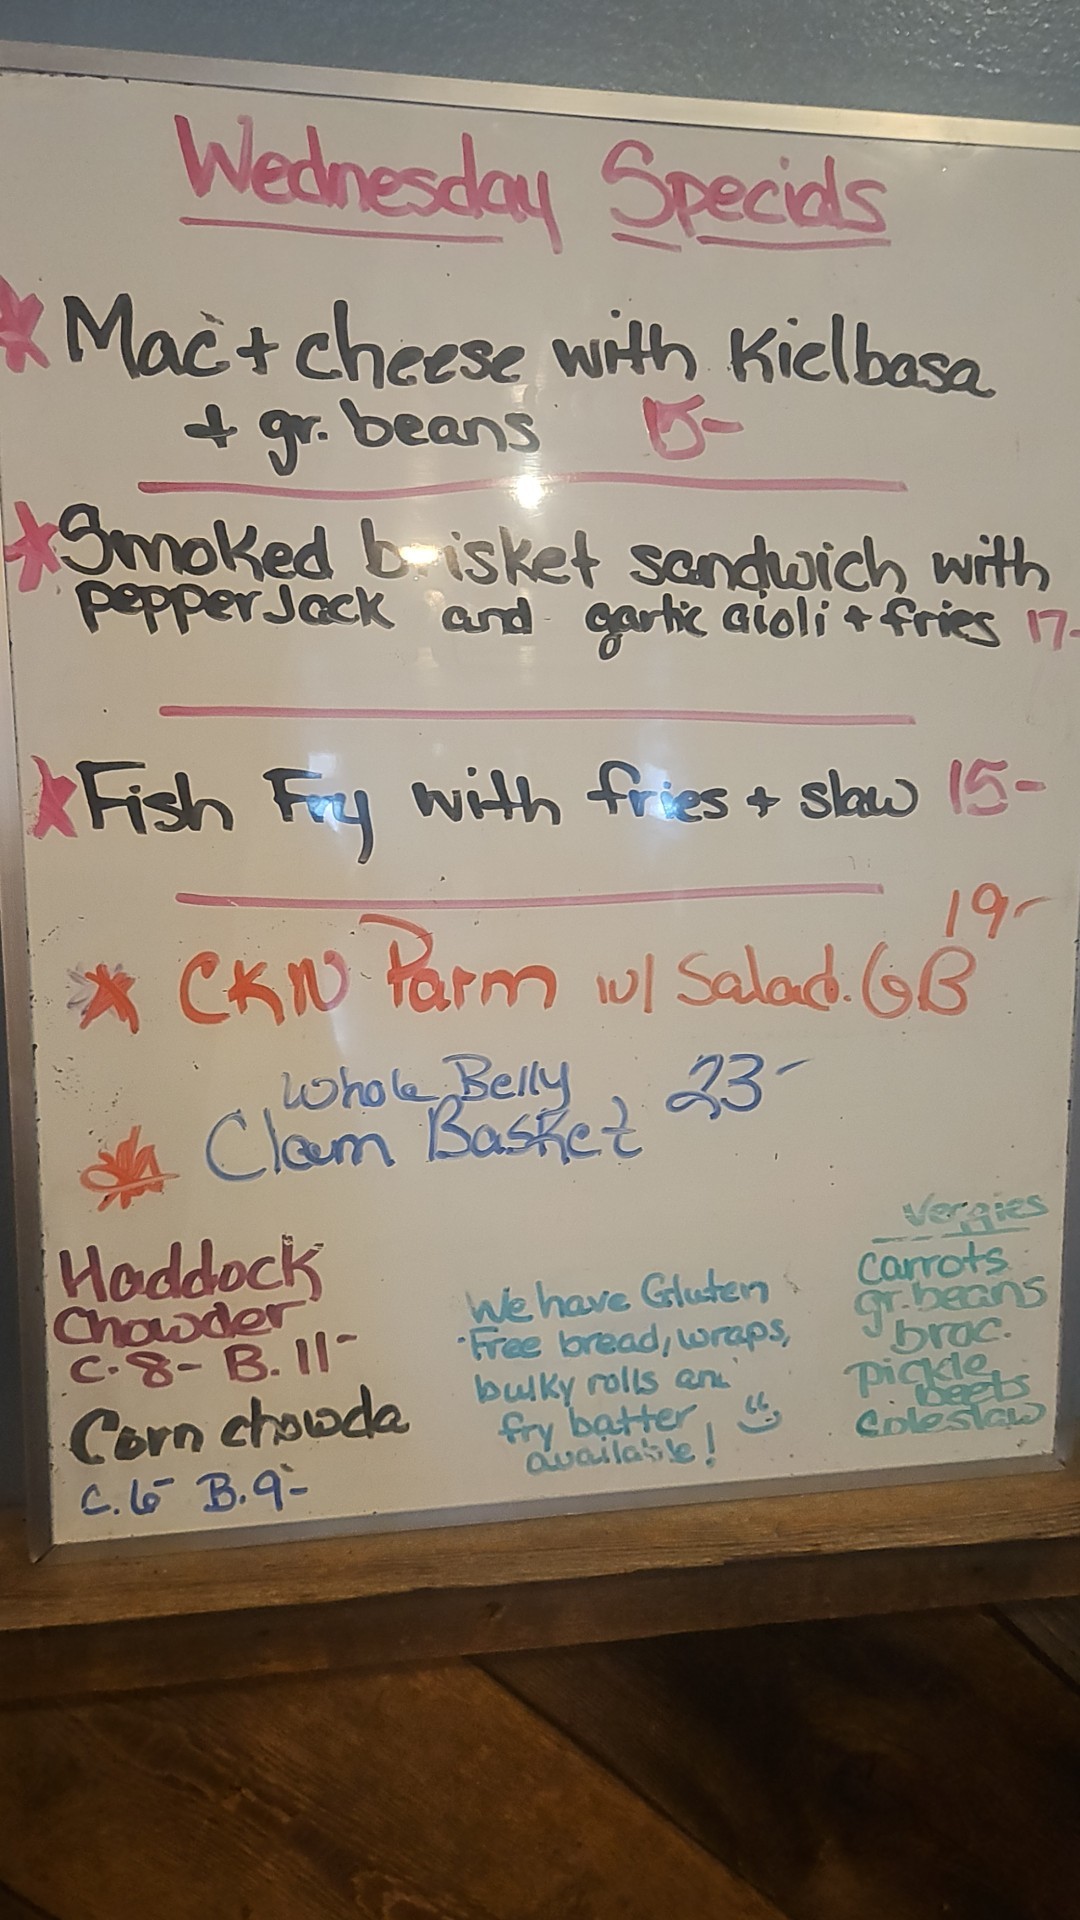 Wednesday Specials
Mac + cheese with Kielbasa
+ gr. beans 15-
Smoked brisket sandwich with
pepper Jack and garlic aioli + fries 17-
Fish Fry with fries + slaw 15-
19-
CKN Parm w/ Salad. GB
Whole Belly 23-
Clam Basket
Haddock
Chowder
C. 8- B. 11-
Corn chowda
C. 6- B. 9-
We have Gluten
Free bread, wraps,
bulky rolls and
fry batter
available!
Veggies
carrots
gr. beans
broc.
pickle
beets
coleslaw